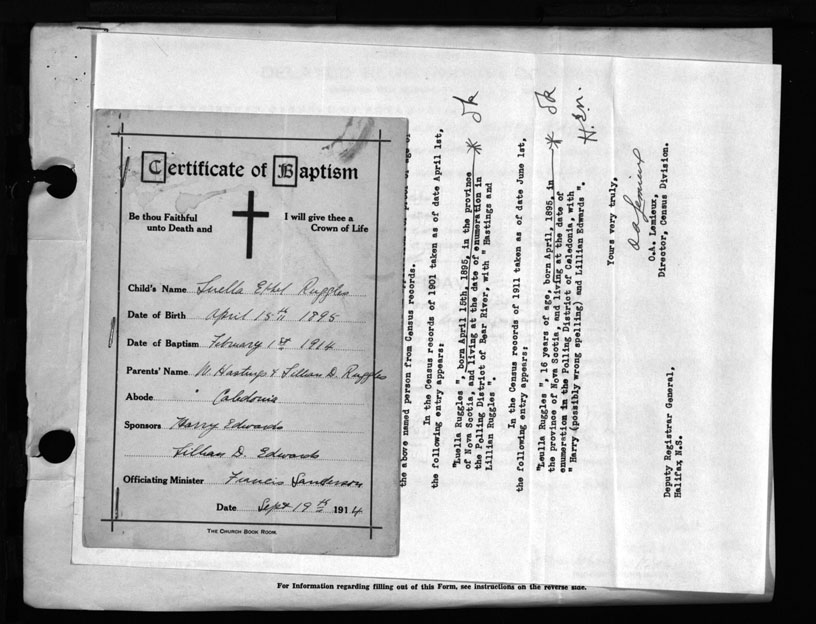 Certificate of Baptism
Be thou Faithful
unto Death and
I will give thee a
Crown of Life
Child's Name Luella Ethel Ruggles
Date of Birth April 15th 1895
Date of Baptism February 1st 1914
Parents' Name W. Hastings & Lillian D. Ruggles
Abode " Caledonia
Sponsors Harry Edwards
Lillian D. Edwards
Officiating Minister Francis Sanderson
Date Sept 19th 1914
THE CHURCH BOOK ROOM.
the above named person from Census records.
In the Census records of 1901 taken as of date April 1st,
the following entry appears:
"Luella Ruggles ", born April 15th, 1895, in the province
of Nova Scotia, and living at the date of enumeration in
the Polling District of Bear River, with " Hastings and
Lillian Ruggles ".
In the Census records of 1911 taken as of date June 1st,
the following entry appears:
"Leulla Ruggles ", 16 years of age, born April, 1895, in
the province of Nova Scotia, and living at the date of
enumeration in the Polling District of Caledonia, with
" Harry (possibly wrong spelling) and Lillian Edwards ".
H.E.M.
Yours very truly,
O A Lemieux
O.A. Lemieux,
Director, Census Division.
Deputy Registrar General,
Halifax N.S.
For Information regarding filling out of this Form, see instructions on the reverse side.